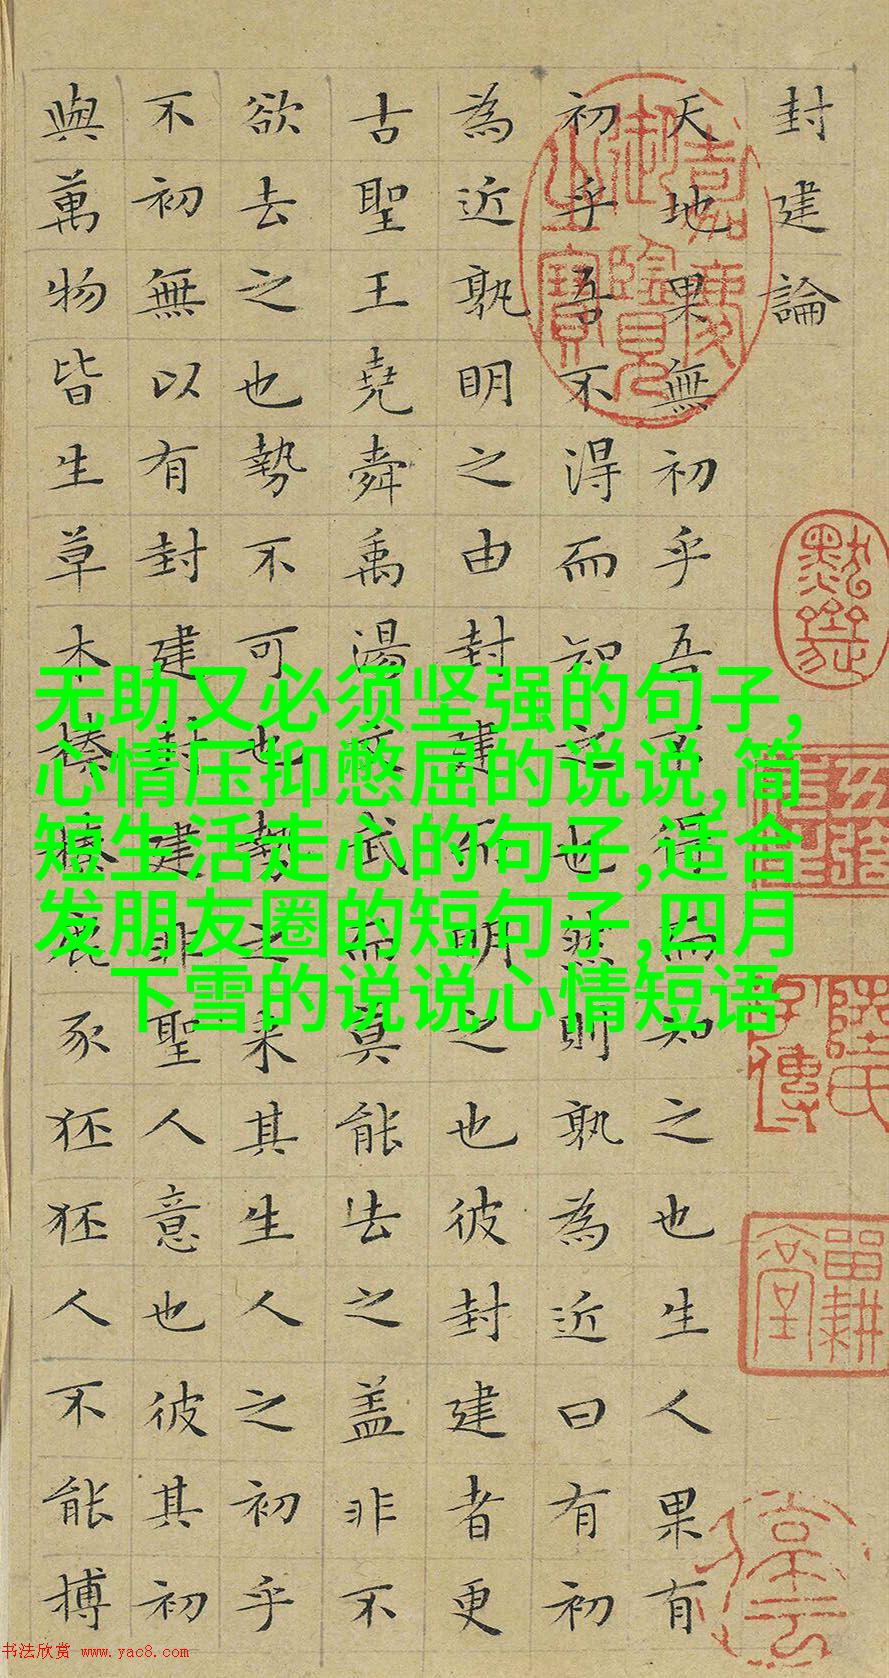 封建論
天地果無初乎吾不得而知之也生人果有
初乎吾不得而知之也然則孰為近曰有初
為近孰明之由封建而明之也彼封建者更
古聖王堯舜禹湯文武而莫能去之盖非不
欲去之也勢不可也勢之來其生人之初乎
不初無以有封建封建非聖人意也彼其初
與萬物皆生草木榛榛鹿豕狉狉人不能搏
嘉慶
御覽
之寶
无助又必须坚强的句子,
心情压抑憋屈的说说,简
短生活走心的句子,适合
发朋友圈的短句子,四月
下雪的说说心情短语
书法欣赏 www.yac8.com